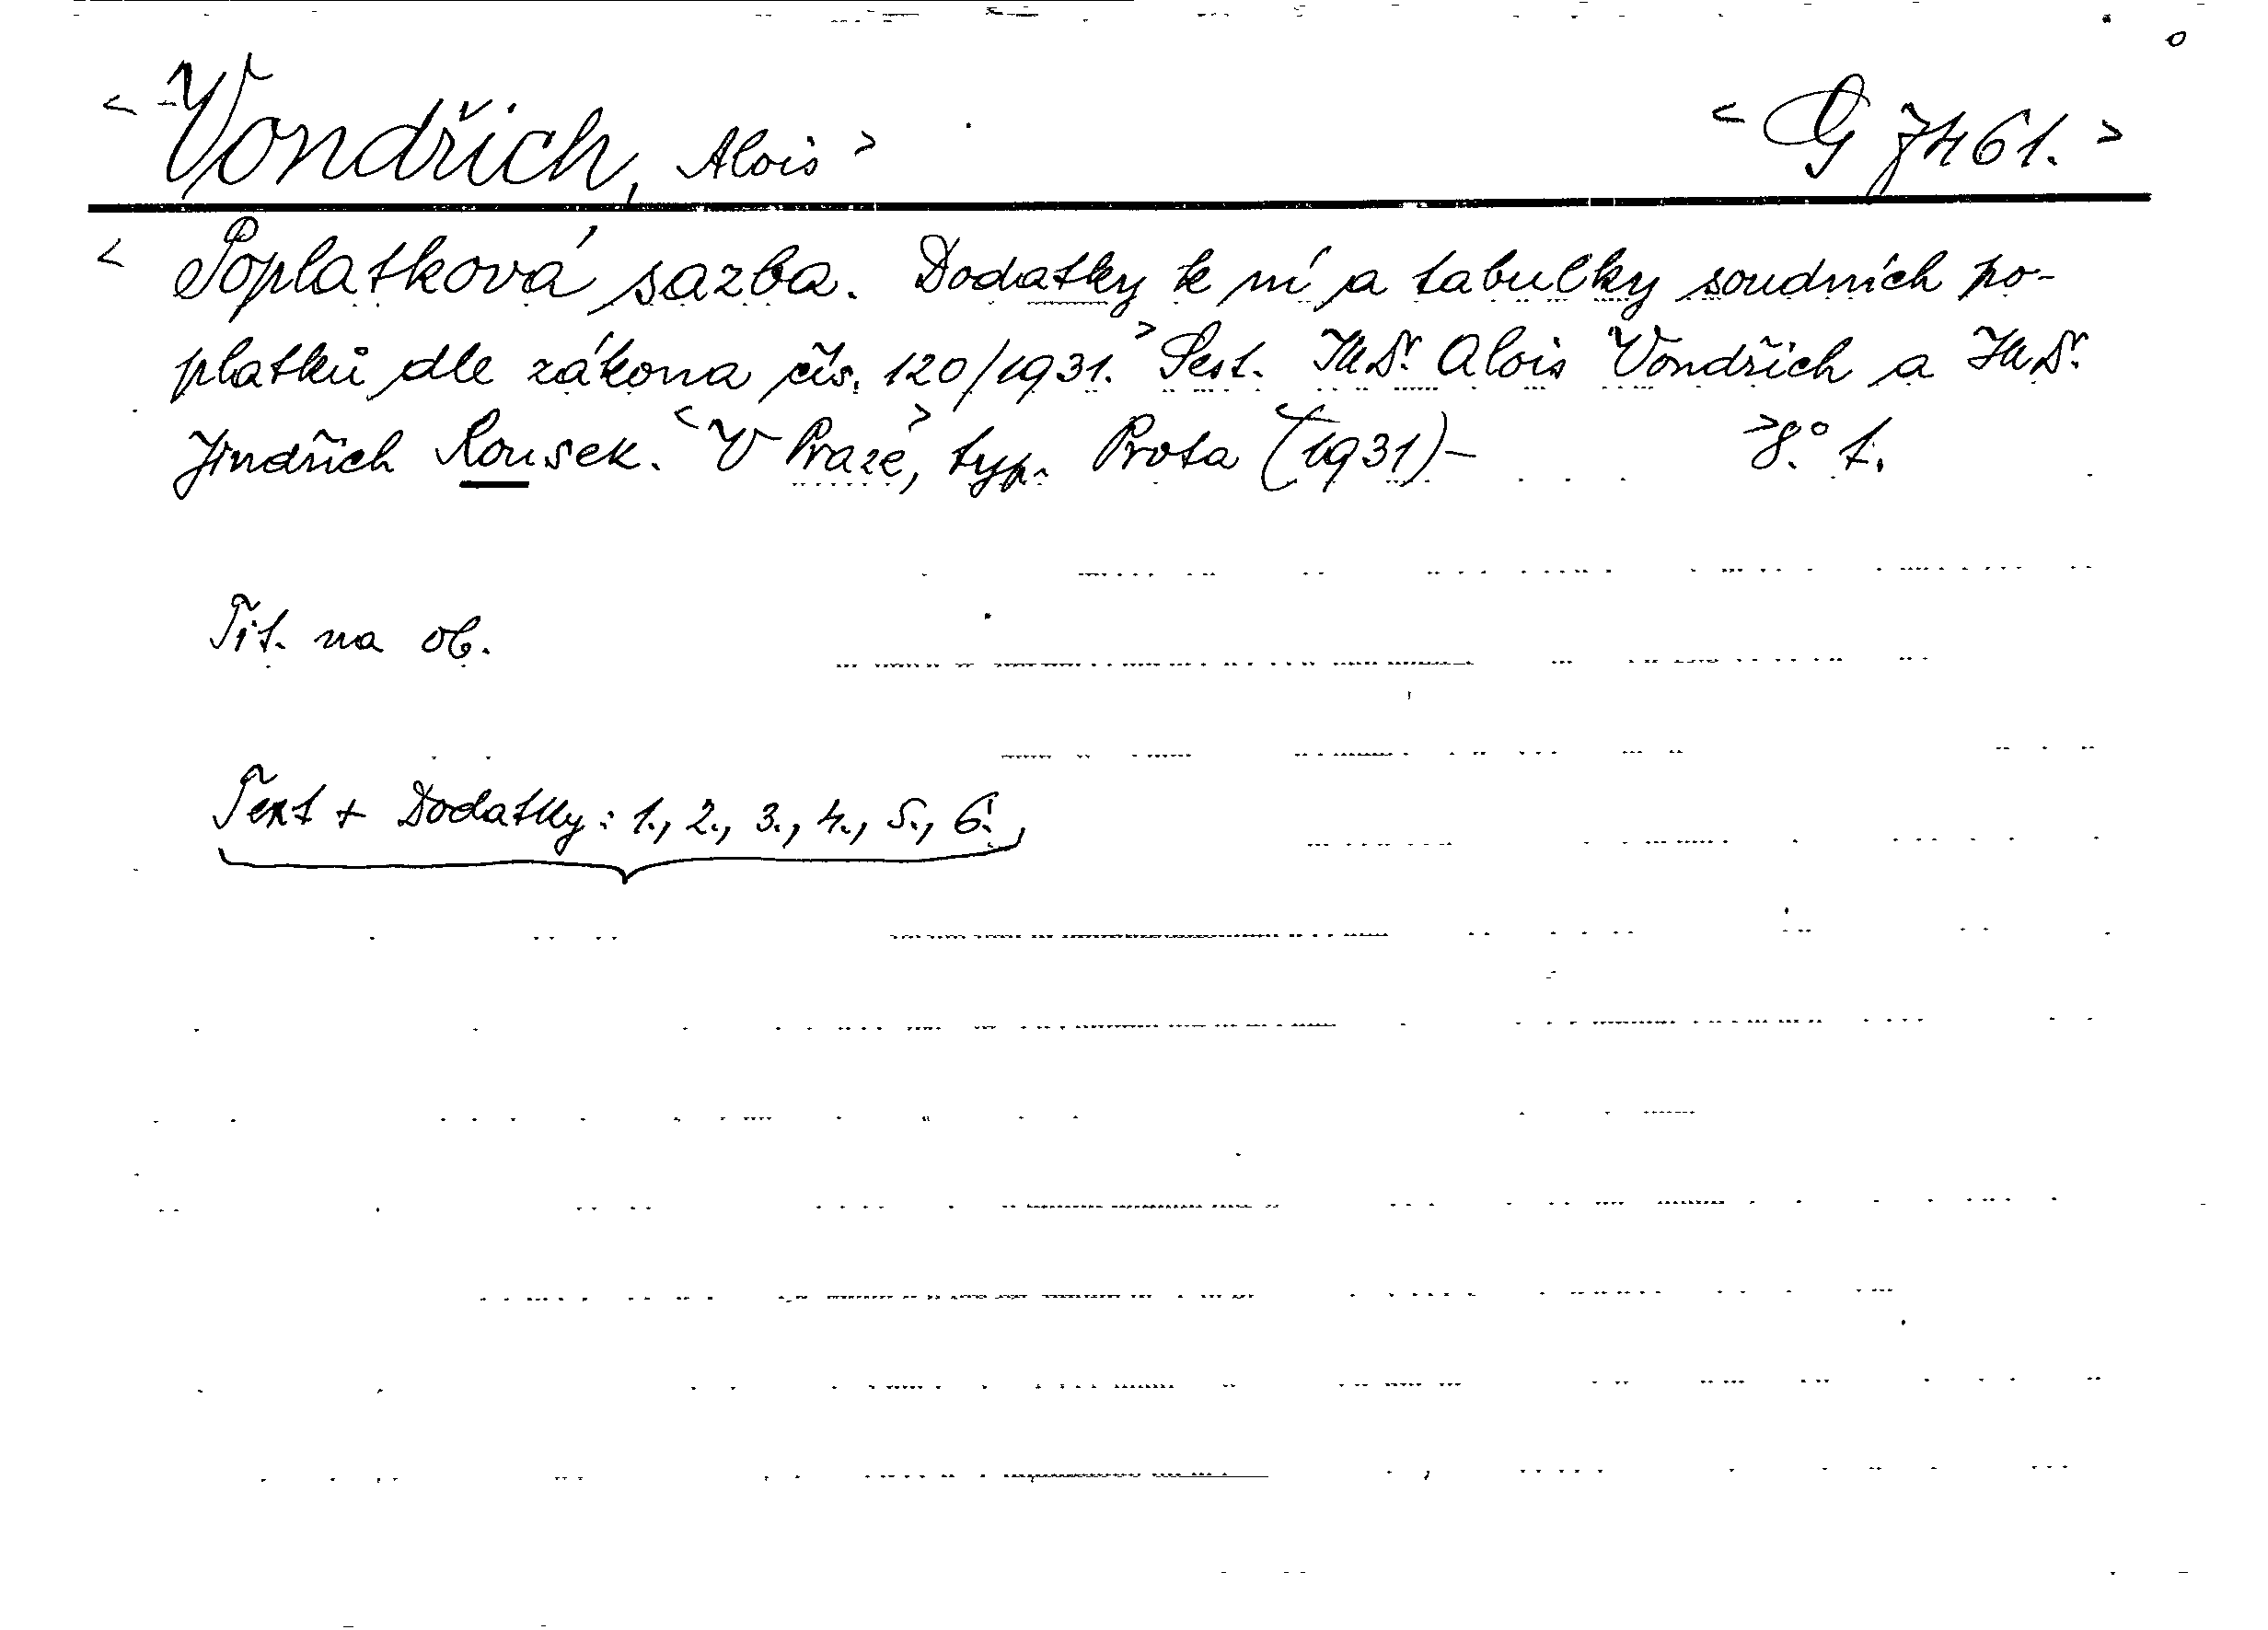 < Vondřich, Alois > < G 7461. >
< Poplatková sazba. Dodatky k ní a tabulky soudních po-
platků dle zákona čís. 120/1931. > Sest. JUDr. Alois Vondřich a JUDr.
Jindřich Rousek. < V Praze >, typ. Prota (1931)- > 8.° t.
Tit. na ob.
Text + Dodatky: 1., 2., 3., 4., 5., 6.,